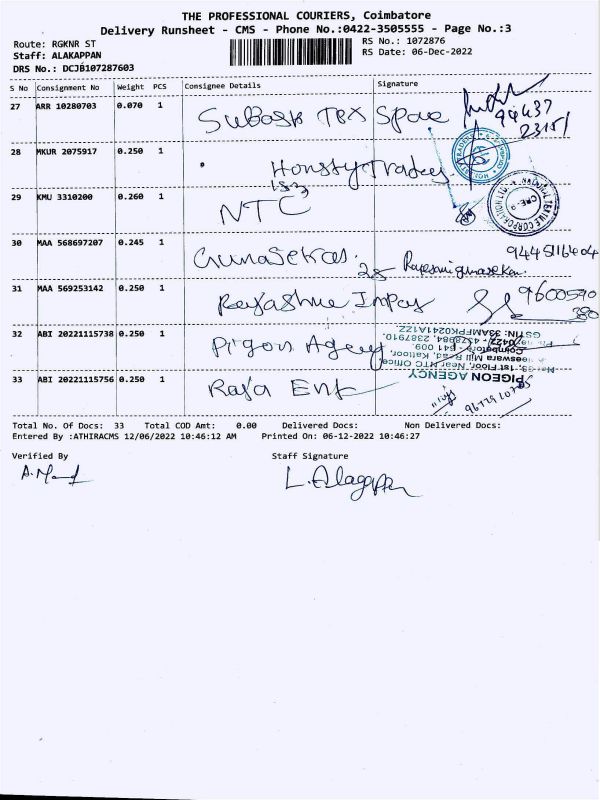 THE PROFESSIONAL COURIERS, Coimbatore
Delivery Runsheet - CMS - Phone No.:0422-3505555 - Page No.:3
Route: RGKNR ST
RS No.: 1072876
Staff: ALAKAPPAN
RS Date: 06-Dec-2022
DRS No.: DCJB107287603
S No Consignment No Weight PCS Consignee Details Signature
27 ARR 10280703 0.070 1 Subash Tex Space
94437
23151
28 MKUR 2075917 0.250 1 Honsty Traders
153
29 KMU 3310200 0.260 1 NTC
NATIONAL TEXTILE CORPORATION LTD.
30 MAA 568697207 0.245 1 Gunasekran. 9445116404
28
31 MAA 569253142 0.250 1 Rajashree Impex 9600590
380
32 ABI 20221115738 0.250 1 Pigon Agency
33 ABI 20221115756 0.250 1 Raja Ent
PIGEON AGENCY
1st Floor, Near NTC Office
Mill Road, Kattoor,
Coimbatore - 641 009.
0422 - 4378984, 2387910.
GSTIN: 33AMFPK0241A1ZZ
Total No. Of Docs: 33 Total COD Amt: 0.00 Delivered Docs: Non Delivered Docs:
Entered By :ATHIRACMS 12/06/2022 10:46:12 AM Printed On: 06-12-2022 10:46:27
Verified By Staff Signature
L. Alagappan